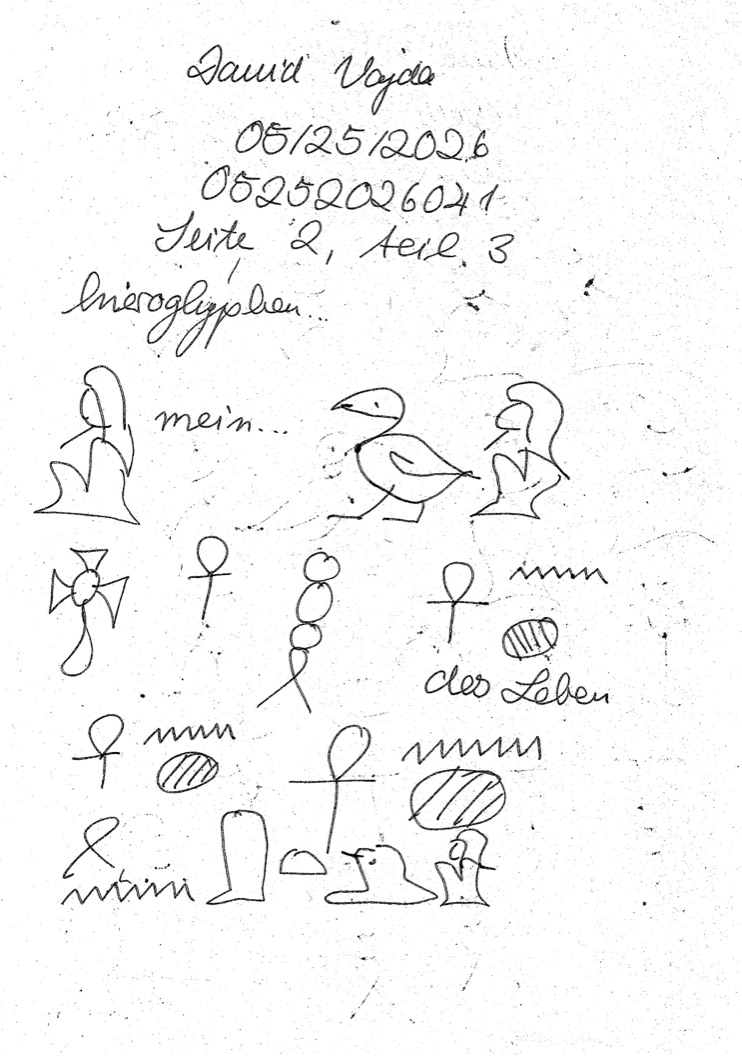 David Vajda
05/25/2026
05252026041
Seite 2, teil. 3
hieroglyphen...
mein...
des Leben